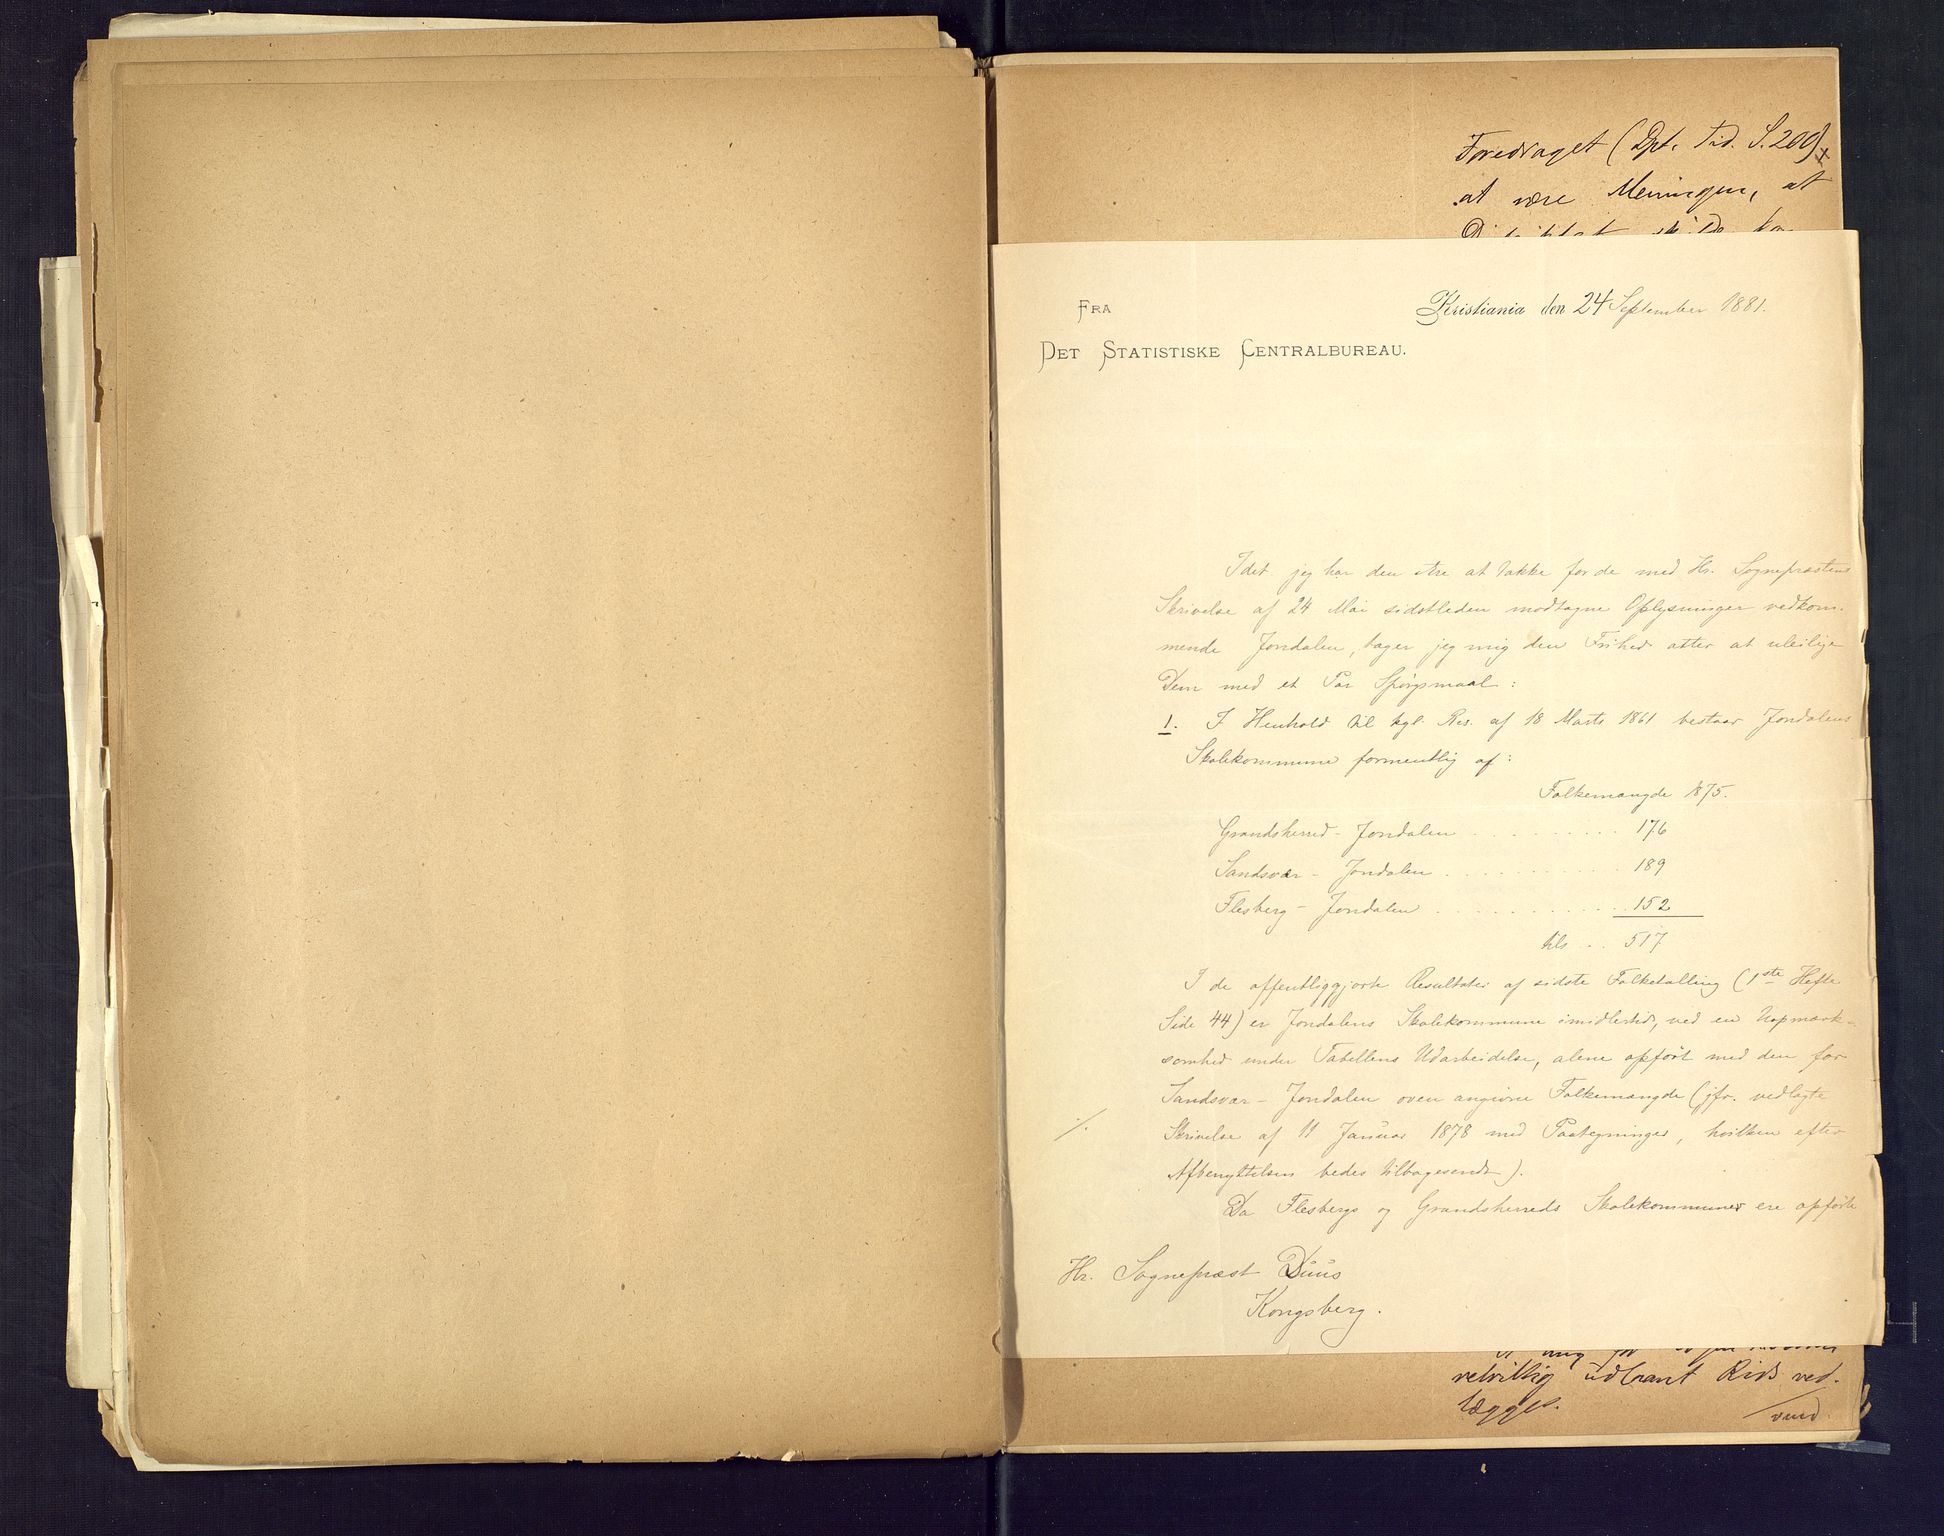 Foredraget (Dpt. Tid. S. 200)
at være Meningen, at
FRA
Kristiania den 24 September 1881.
DET STATISTISKE CENTRALBUREAU.
Idet jeg har den Ære at takke for de med Hr. Sognepræstens
Skrivelse af 24 Mai sidstleden modtagne Oplysninger vedkom-
mende Jondalen, tager jeg mig den Frihed atter at uleilige
Dem med et Par Spørgsmaal:
1. I Henhold til kgl. Res. af 18 Marts 1861 bestaar Jondalens
Skolekommune formentlig af:
Folkemængde 1875.
Grandsherred - Jondalen . . . . . . . . . 176
Sandsvær - Jondalen . . . . . . . . . . 189
Flesberg - Jondalen . . . . . . . . . . 152
tils . . 517
I de offentliggjorte Resultater af sidste Folketælling (1ste Hefte
Side 44) er Jondalens Skolekommune imidlertid, ved en Uopmærk-
somhed under Tabellens Udarbeidelse, alene opført med den for
Sandsvær - Jondalen oven angivne Folkemængde (jfr. vedlagte
./. Skrivelse af 11 Januar 1878 med Paategninger, hvilken efter
Afbenyttelsen bedes tilbagesendt).
Da Flesbergs og Grandsherreds Skolekommuner ere opførte
Hr. Sognepræst Duus
Kongsberg.
velvillig udlaant Rids ved-
lægges.
vend.